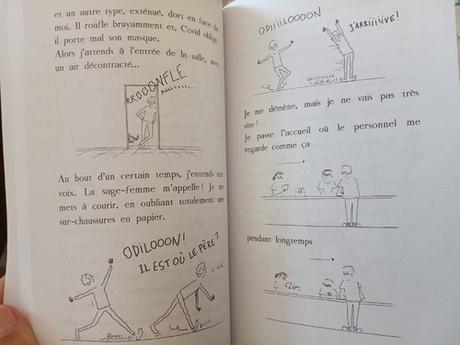 et un autre type, exténué, dort en face de
moi. Il ronfle bruyamment et, Covid oblige,
il porte mal son masque.
Alors j'attends à l'entrée de la salle, avec
un air décontracté...
RROOONFLE
Au bout d'un certain temps, j'entends une
voix. La sage-femme m'appelle ! Je me
mets à courir, en oubliant totalement mes
sur-chaussures en papier.
ODILOOON!
IL EST OÙ LE PÈRE?
ODIIIILOOOON
J'ARRIIIIIVE!
Je me démène, mais je ne vais pas très
vite !
Je passe l'accueil où le personnel me
regarde comme ça
pendant longtemps